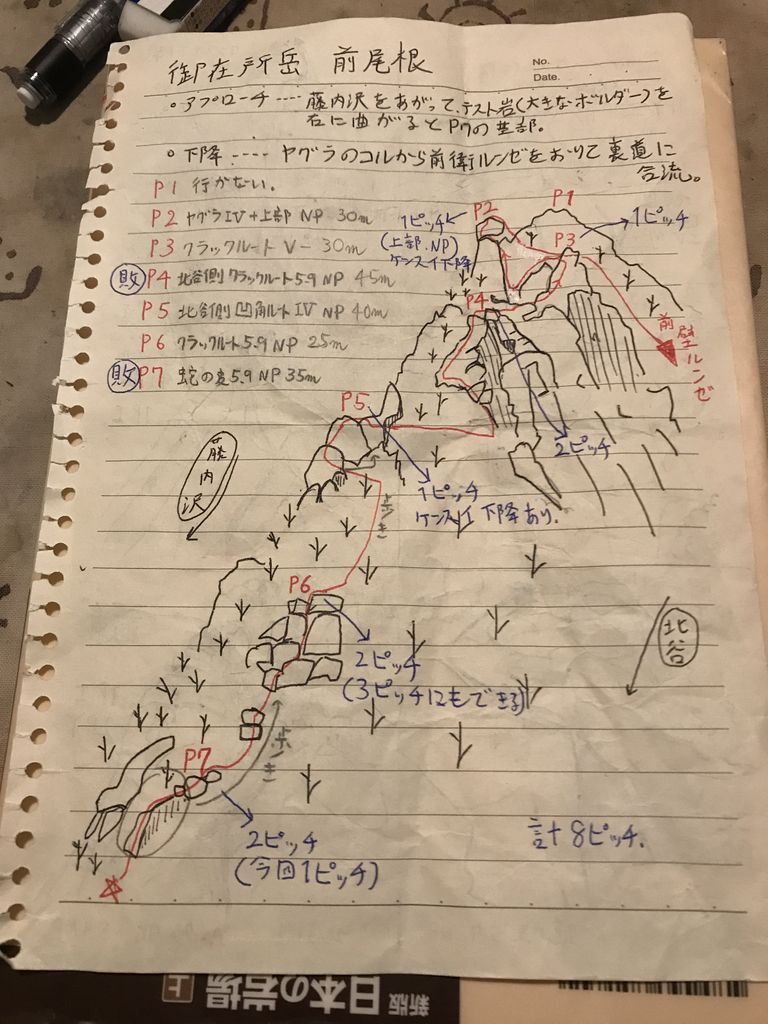 御在所岳 前尾根
No.
Date.
○アプローチ---- 藤内沢をあがって、テスト岩(大きなボルダー)を
右に曲がるとP7の基部。
○下降---- ヤグラのコルから前衛ルンゼをおりて裏道に
合流。
P1 行かない。
P2 ヤグラIV+上部 NP 30m
P3 クラックルート V- 30m
敗 P4 北谷側クラックルート5.9 NP 45m
P5 北谷側凹角ルートIV NP 40m
P6 クラックルート5.9 NP 25m
敗 P7 蛇の 5.9 NP 35m
1ピッチ
(上部.NP)
ケンスイ下降
P2
P1
P3
1ピッチ
P4
前壁ルンゼ
P5
2ピッチ
藤内沢
1ピッチ
ケンスイ下降あり.
歩き
P6
北谷
2ピッチ
(3ピッチにもできる)
歩き
P7
2ピッチ
(今回1ピッチ)
計8ピッチ.
新版 日本の岩場 上